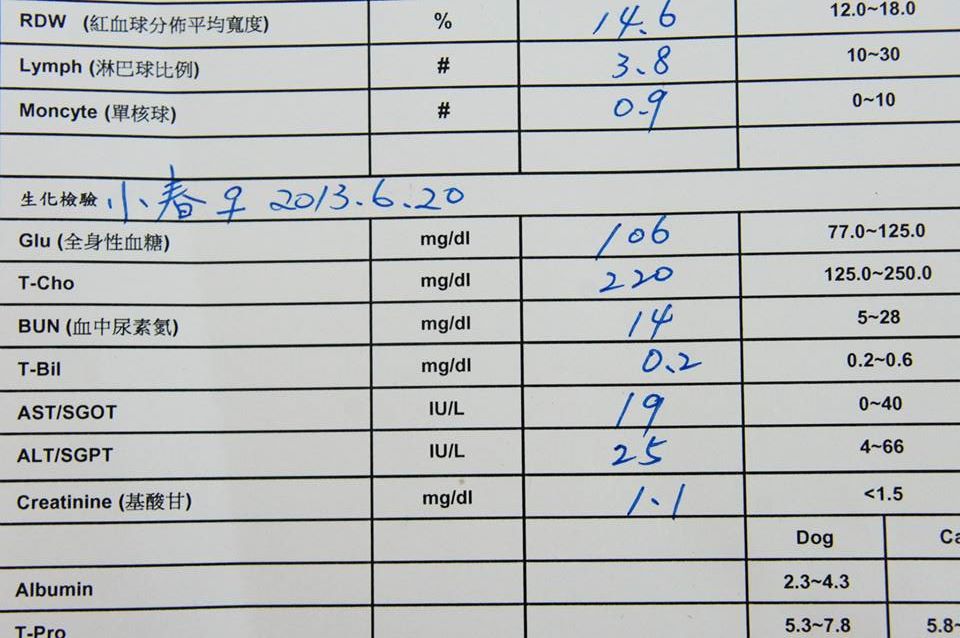 RDW (紅血球分佈平均寬度) % 14.6 12.0~18.0
Lymph (淋巴球比例) # 3.8 10~30
Moncyte (單核球) # 0.9 0~10
生化檢驗 小春 ♀ 2013.6.20
Glu (全身性血糖) mg/dl 106 77.0~125.0
T-Cho mg/dl 220 125.0~250.0
BUN (血中尿素氮) mg/dl 14 5~28
T-Bil mg/dl 0.2 0.2~0.6
AST/SGOT IU/L 19 0~40
ALT/SGPT IU/L 25 4~66
Creatinine (基酸甘) mg/dl 1.1 <1.5
Dog Ca
Albumin 2.3~4.3
T-Pro 5.3~7.8 5.8~